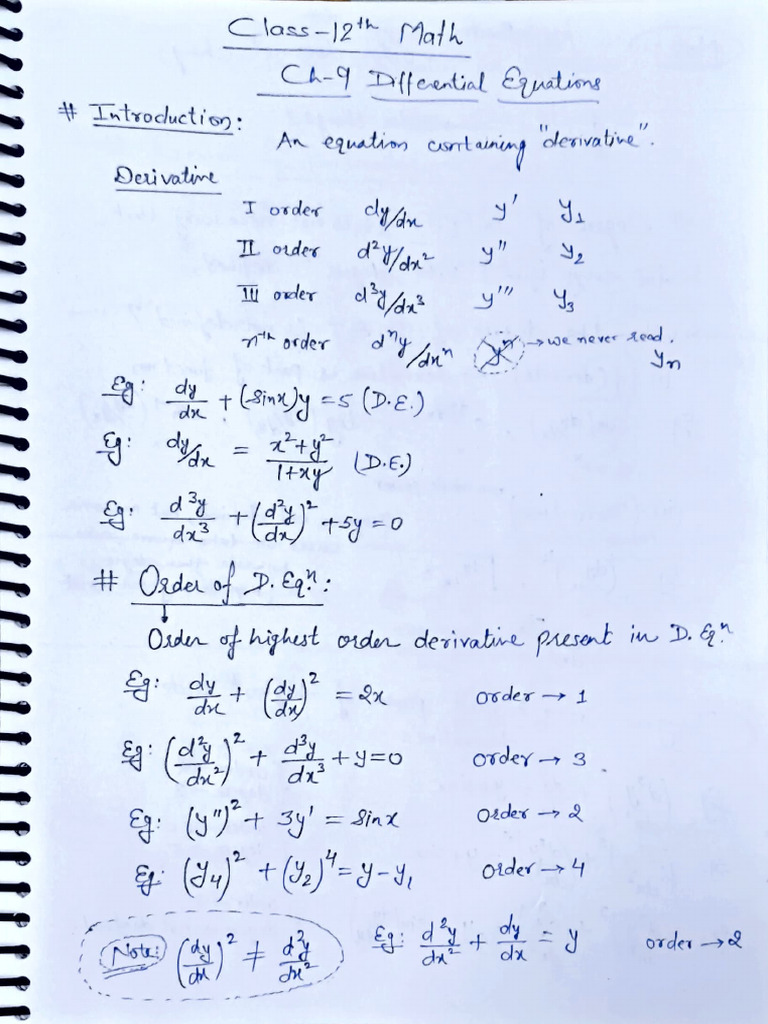 Class-12th Math
Ch-9 Differential Equations
# Introduction:
An equation containing "derivative".
Derivative
I order dy/dx y' y₁
II order d²y/dx² y'' y₂
III order d³y/dx³ y''' y₃
nth order dⁿy/dxⁿ yⁿ → we never read. yₙ
Eg: dy/dx + (-sinx)y = 5 (D.E.)
Eg: dy/dx = x²+y²/1+xy (D.E.)
Eg: d³y/dx³ + (d²y/dx)² + 5y = 0
# Order of D. Eqⁿ:
Order of highest order derivative present in D. Eqⁿ
Eg: dy/dx + (dy/dx)² = 2x order → 1
Eg: (d²y/dx²)² + d³y/dx³ + y=0 order → 3
Eg: (y'')² + 3y' = sinx order → 2
Eg: (y₄)² + (y₂)⁴ = y - y₁ order → 4
Note: (dy/dx)² ≠ d²y/dx² Eg: d²y/dx² + dy/dx = y order → 2